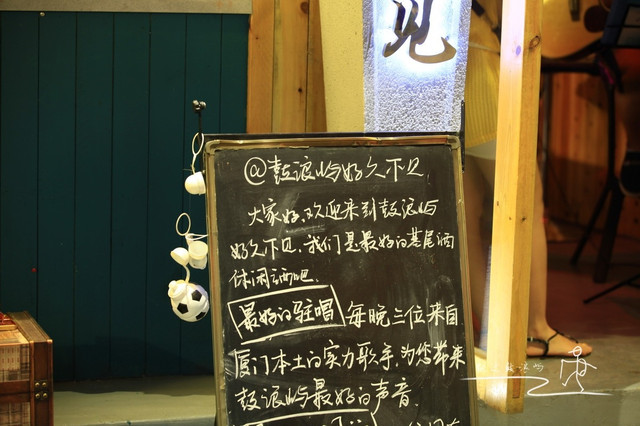 见
@鼓浪屿好久不见
大家好,欢迎来到鼓浪屿
好久不见,我们是最好的基尾酒
休闲酒吧.
最好的驻唱 每晚三位来自
厦门本土的实力歌手,为您带来
鼓浪屿最好的声音.